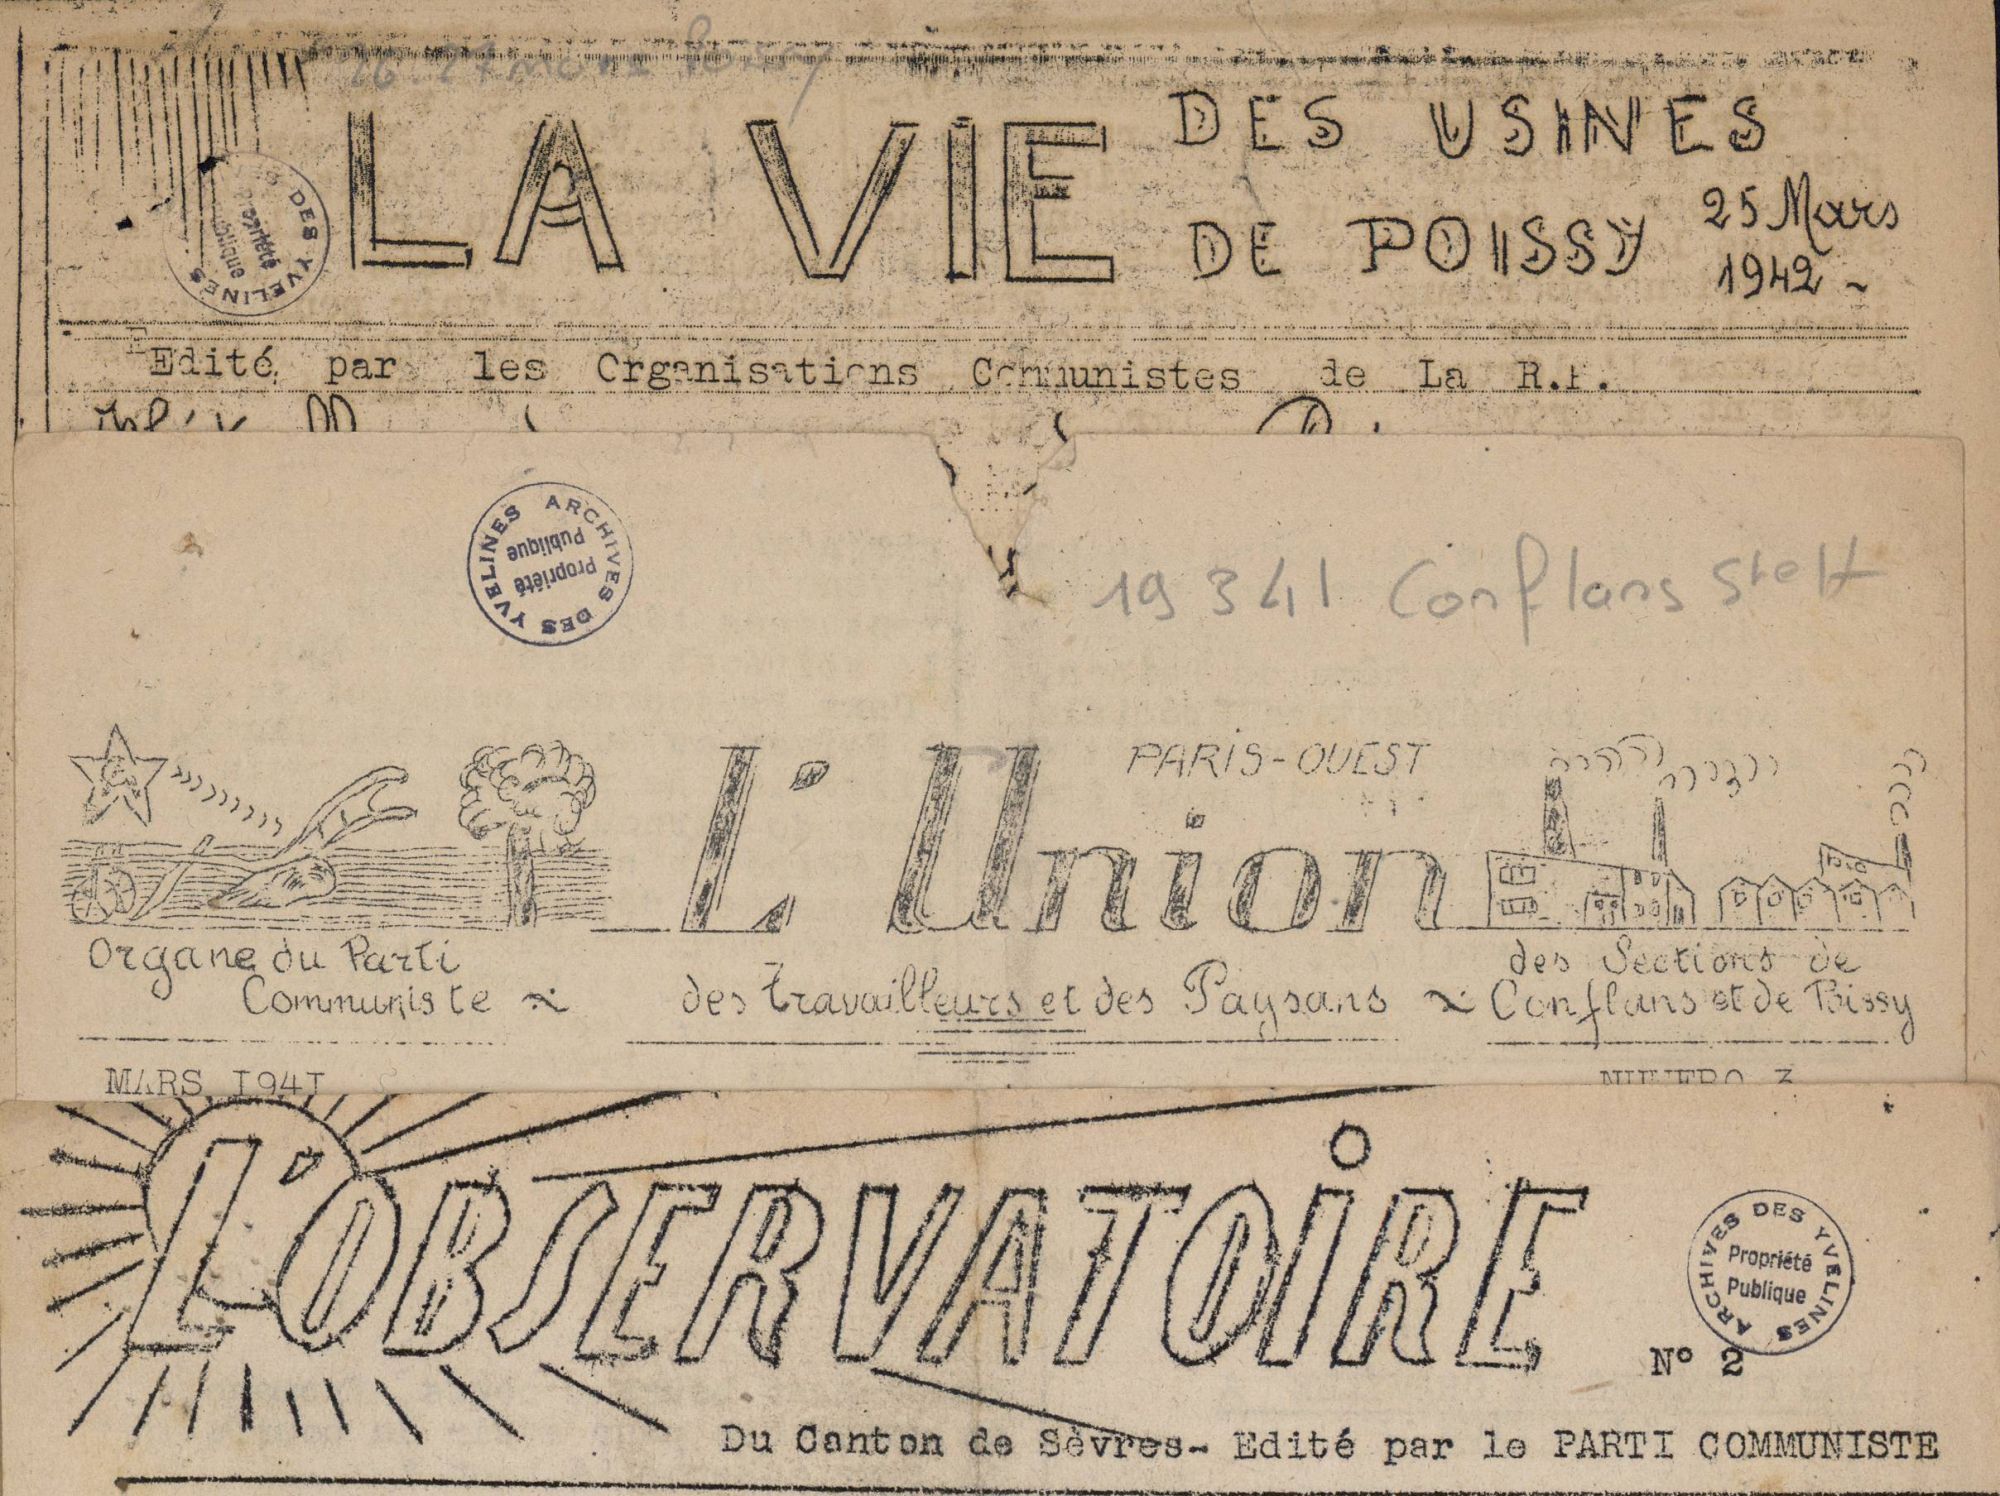 LA VIE DES USINES
DE POISSY
25 Mars
1942 -
DES YVELINES
Propriété
Edité par les Organisations Communistes de La R.P.
ARCHIVES DES YVELINES
Propriété
Publique
19 3 41 Conflans Ste H
L'Union
PARIS-OUEST
Organe du Parti
Communiste
des travailleurs et des Paysans
des Sections de
Conflans et de Poissy
MARS I94I
NUMERO 3
L'OBSERVATOIRE
ARCHIVES DES YVELINES
Propriété
Publique
N° 2
Du Canton de Sèvres- Edité par le PARTI COMMUNISTE